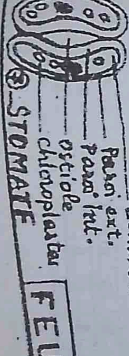 Paroi ext.
Paroi int.
Ostiole
Chloroplastes
STOMATE